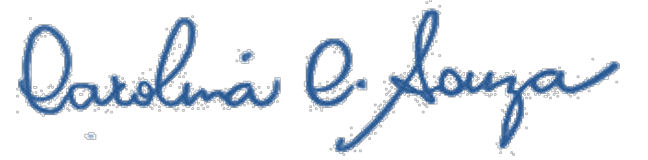 Carolina C. Souza